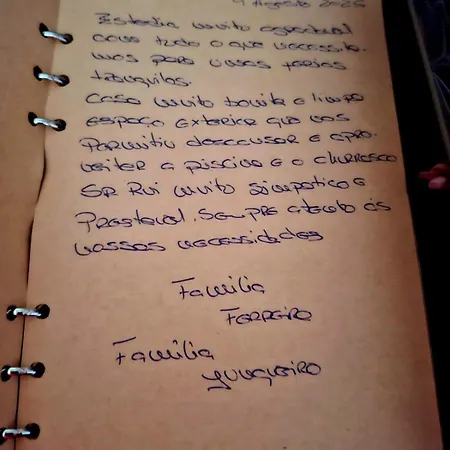 9 Agosto 2025
Estadia muito agradavel
com tudo o que necessita-
mos para umas ferias
tranquilas.
Casa muito bonita e limpa
espaço exterior que nos
Permitiu descansar e apro-
veitar a piscina e o churrasco
Sr Rui muito simpatico e
Prestavel. Sempre atento ás
nossas necessidades
Familia
Ferreiro
Familia
Junqueiro